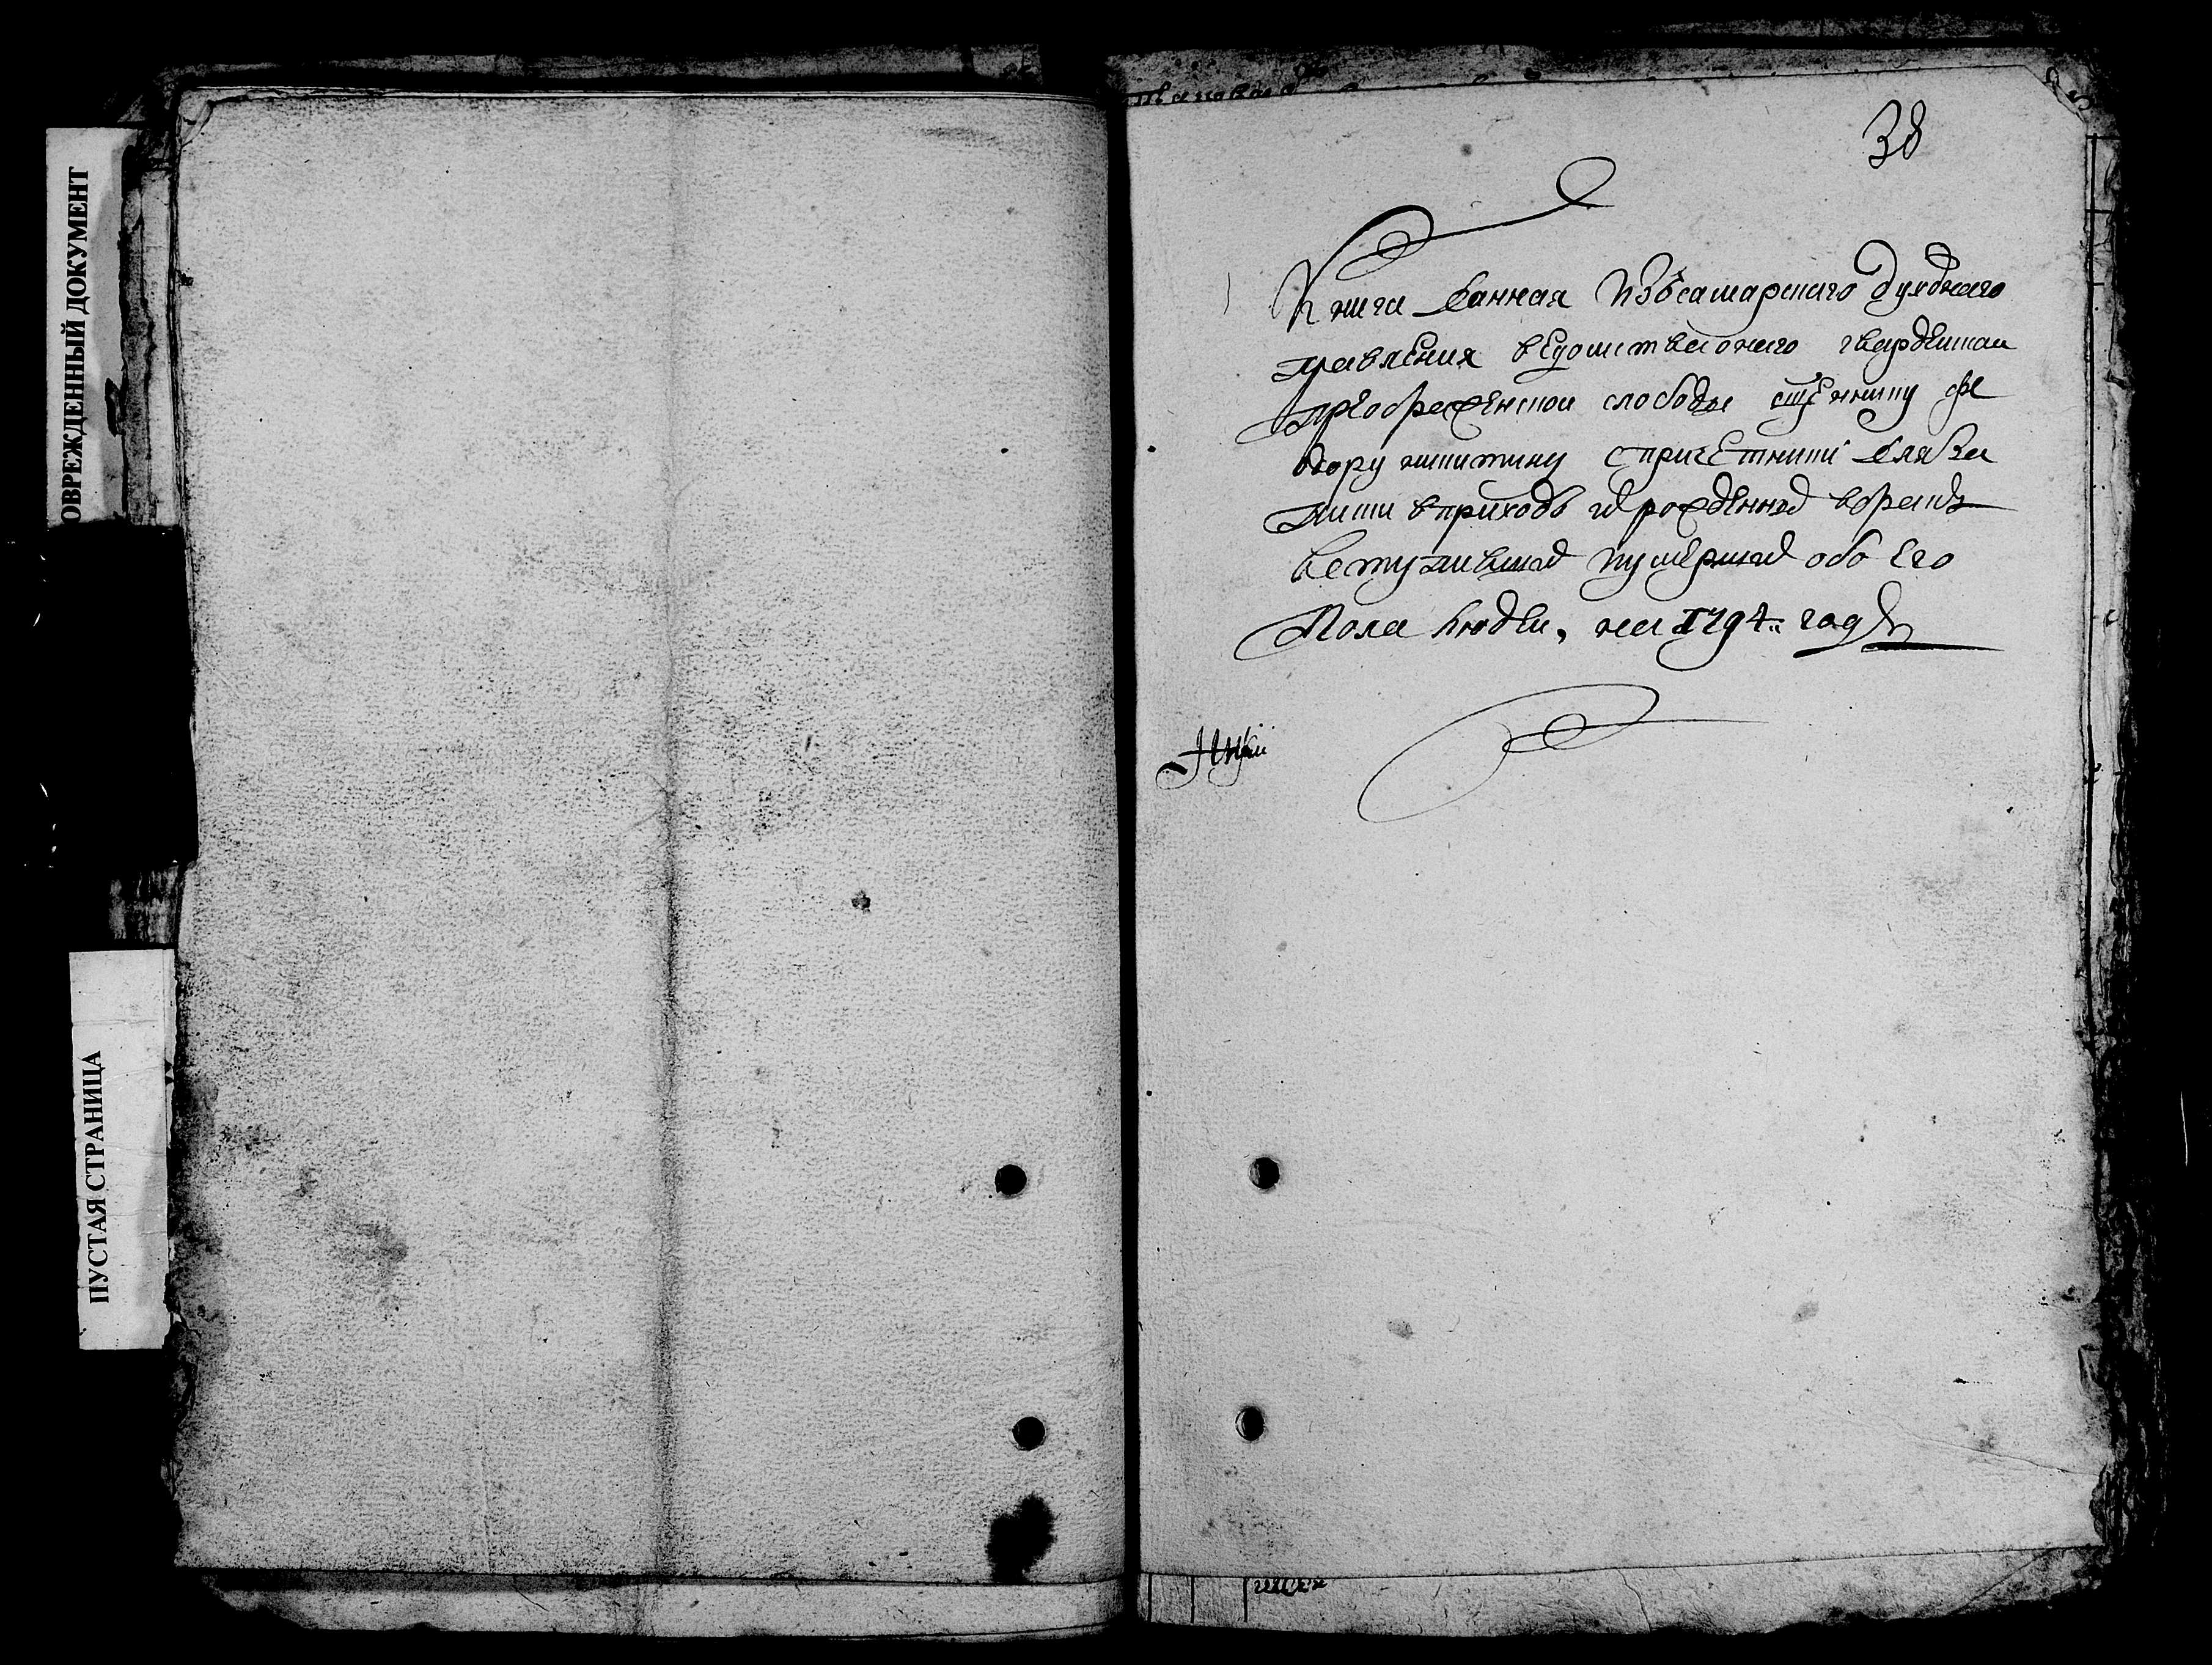 ОВРЕЖДЕННЫЙ ДОКУМЕНТ
ПУСТАЯ СТРАНИЦА
38
Книга данная изъ самарскаго духовнаго
правления ведомства оного гвардейской
преображенской слободы сщеннику фе
одору никитину с причетники для за
писки в приходъ рожденных в бракъ
вступивших и умерших обоего
пола людеи, на 1794 годъ